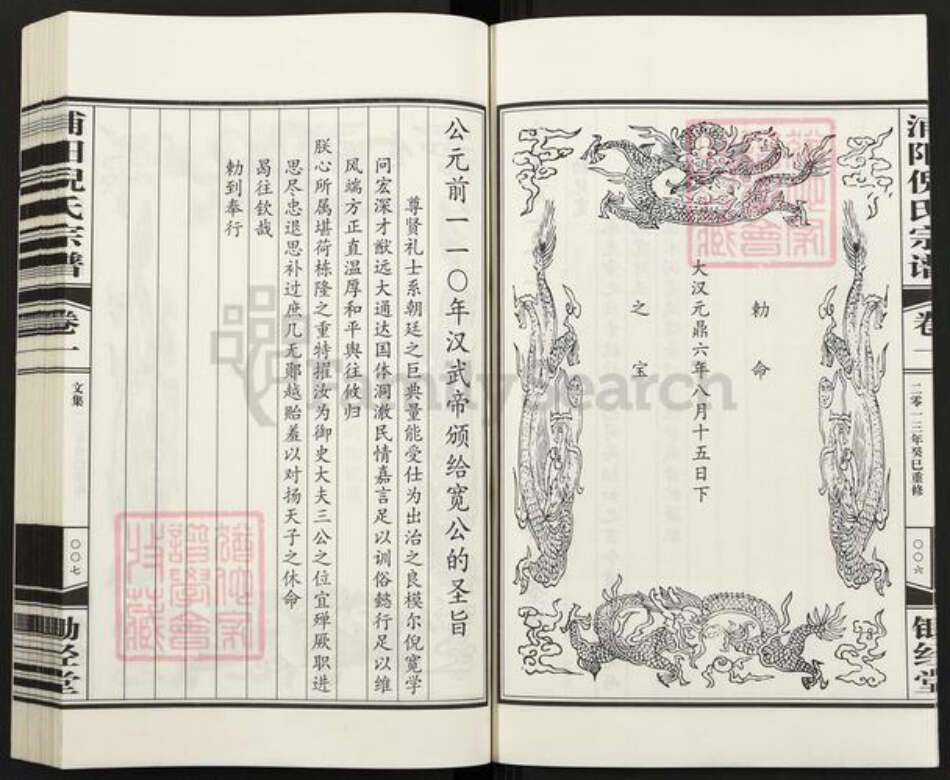 浦阳倪氏宗谱
卷一
二零一三年癸巳重修
〇〇六
锄经堂
勅命
之宝
大汉元鼎六年八月十五日下
公元前一一〇年汉武帝颁给宽公的圣旨
尊贤礼士系朝廷之巨典量能受仕为出治之良模尔倪宽学
问宏深才猷远大通达国体洞澈民情嘉言足以训俗懿行足以维
风端方正直温厚和平舆往攸归
朕心所属堪荷栋隆之重特擢汝为御史大夫三公之位宜殚厥职进
思尽忠退思补过庶几无鄙越贻羞以对扬天子之休命
曷往钦哉
勅到奉行
浦阳倪氏宗谱
卷一
文集
〇〇七
锄经堂
FamilySearch